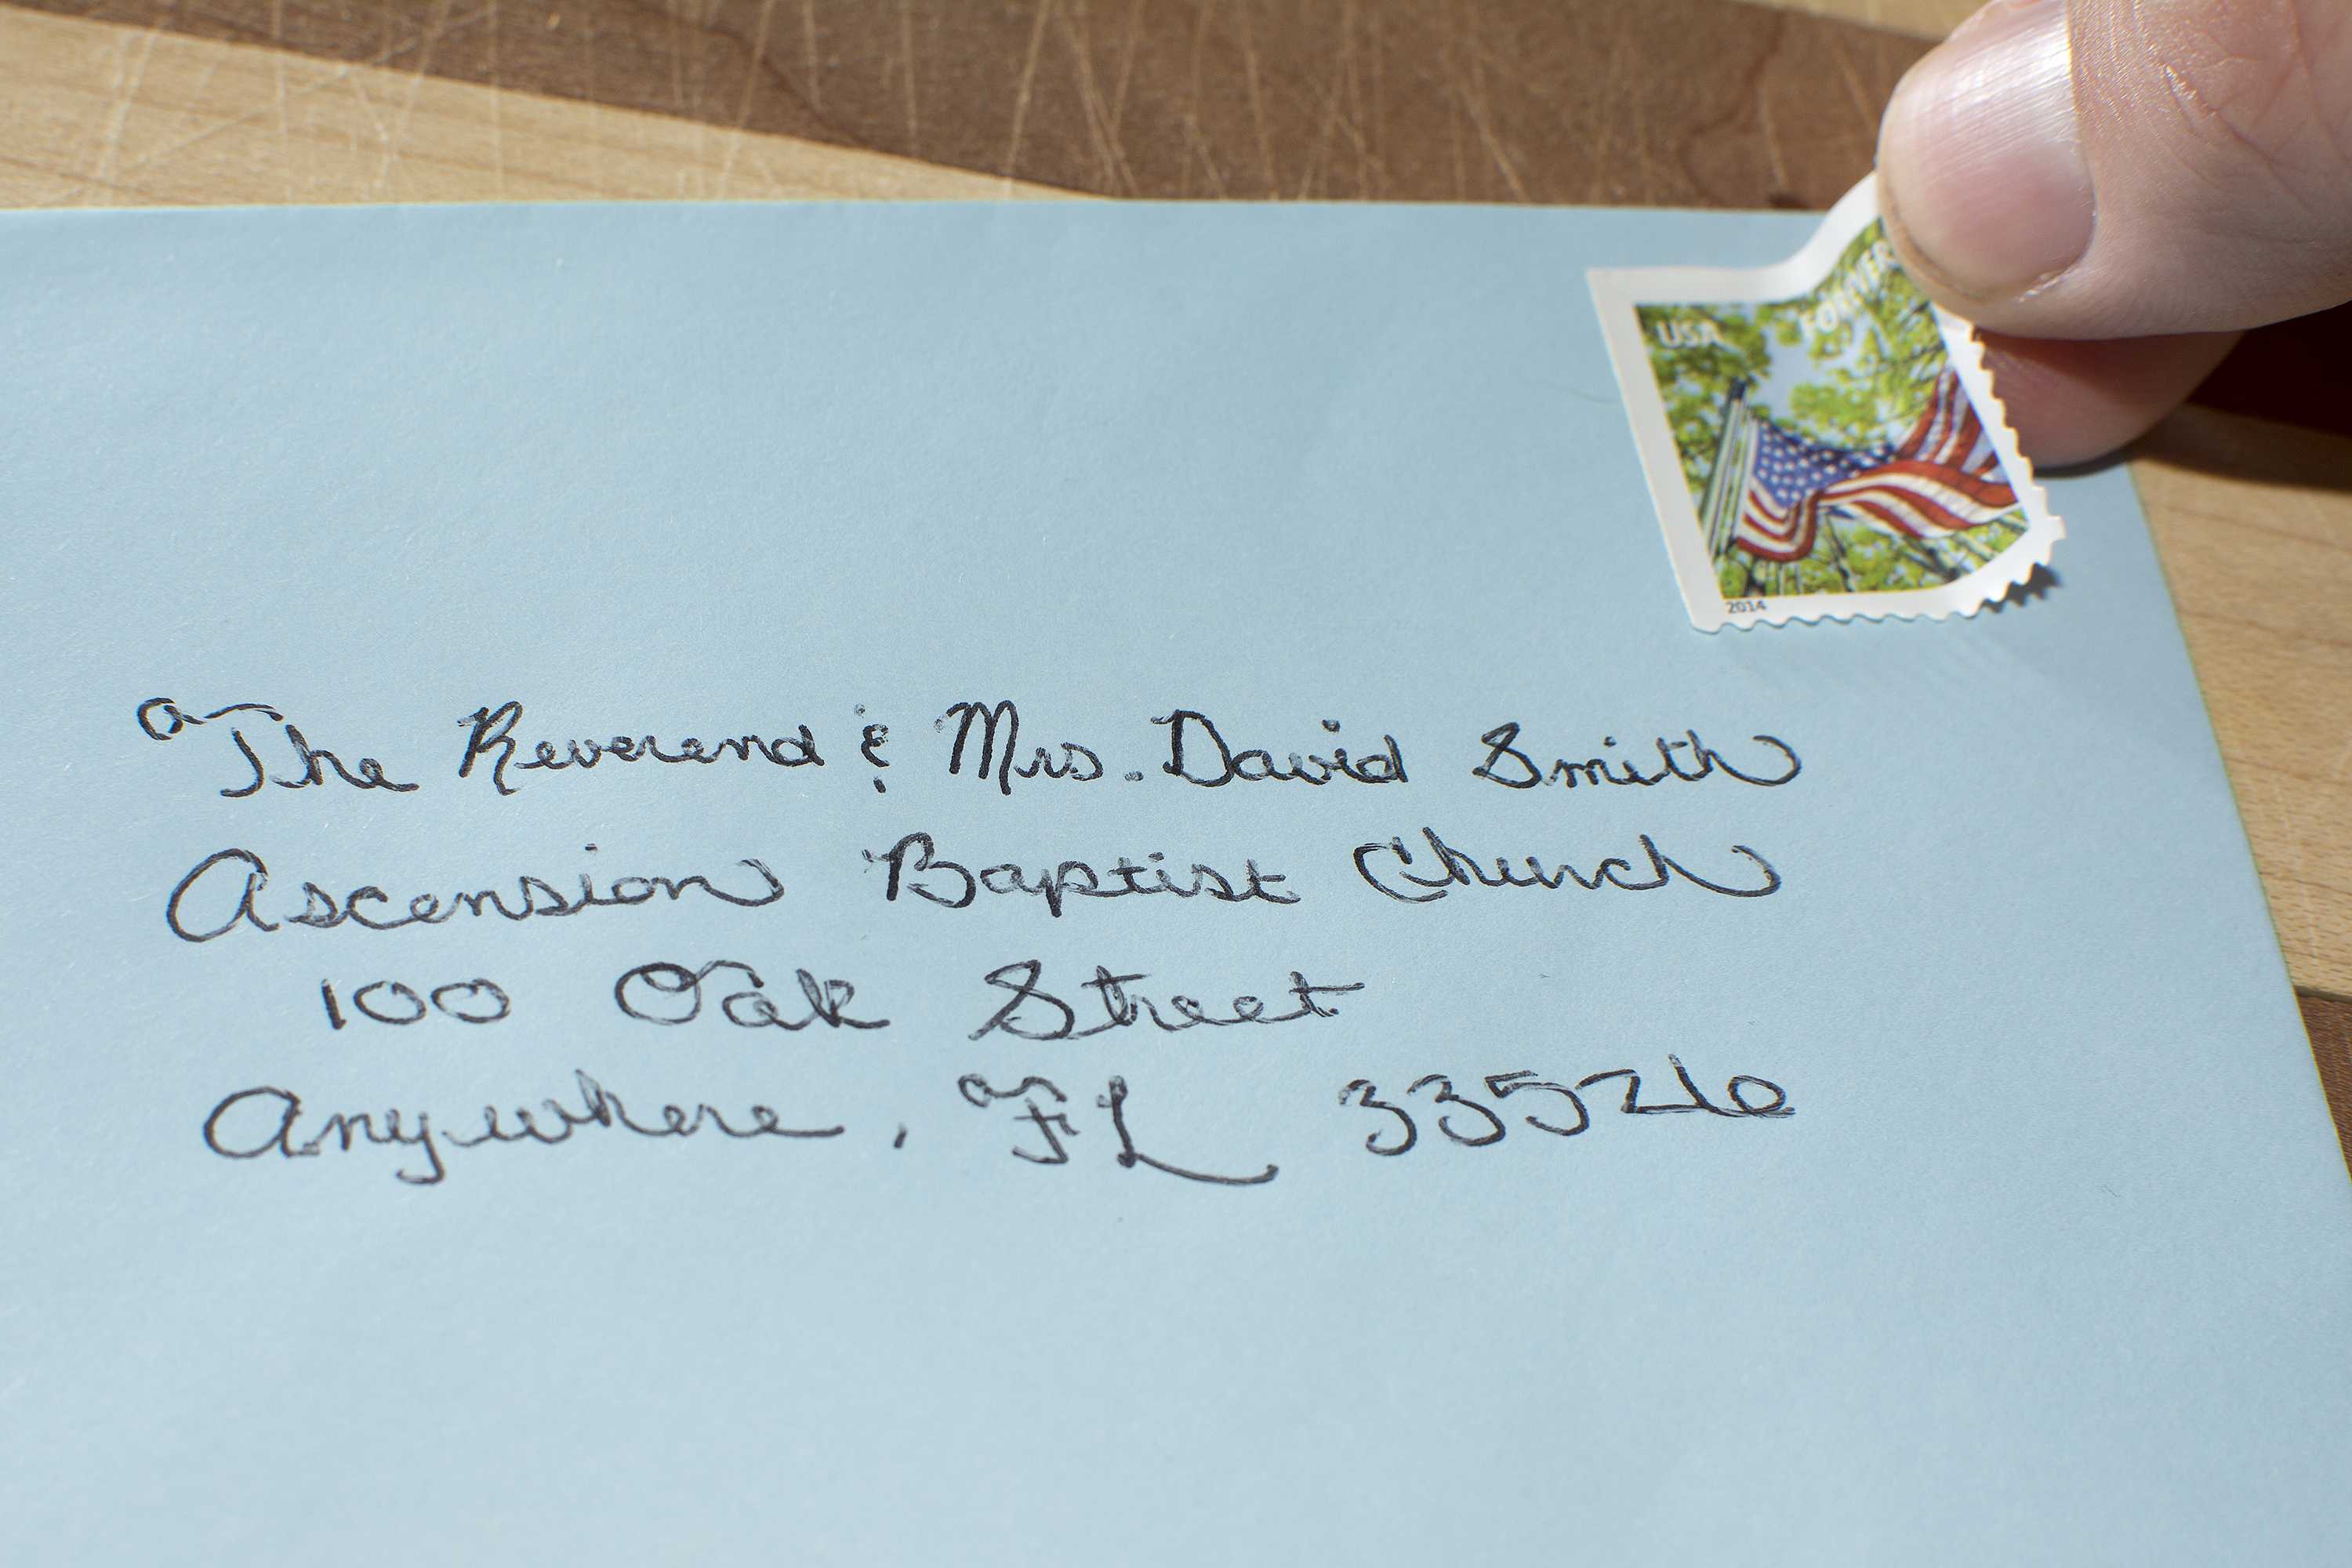 USA FOREVER
2014
The Reverend & Mrs. David Smith
Ascension Baptist Church
100 Oak Street
Anywhere, FL 33526